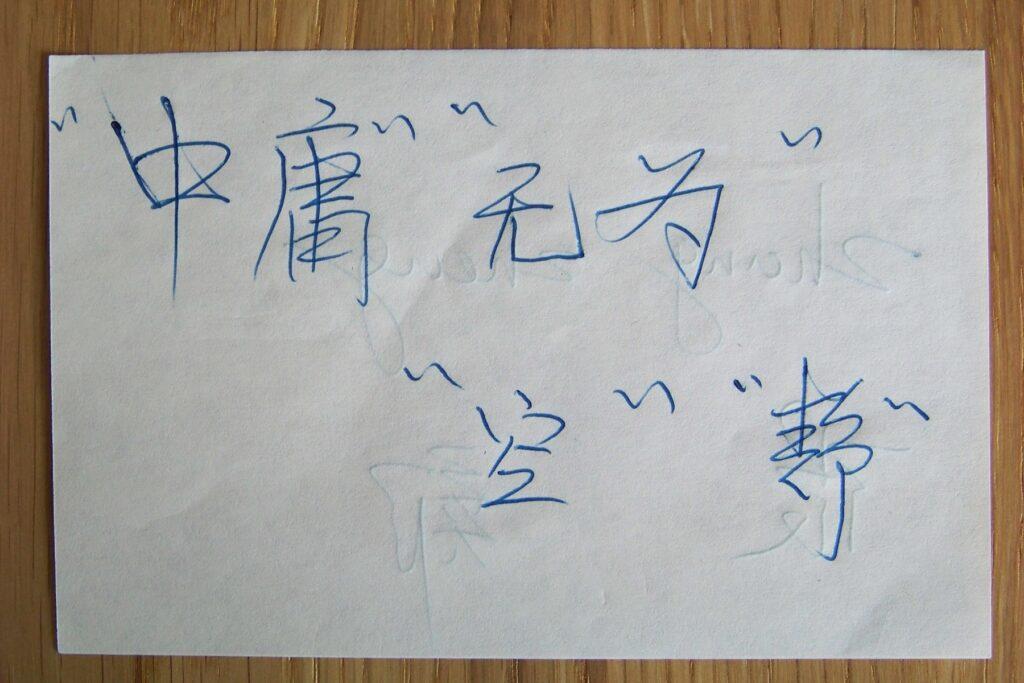 "中庸" "无为"
"空" "静"